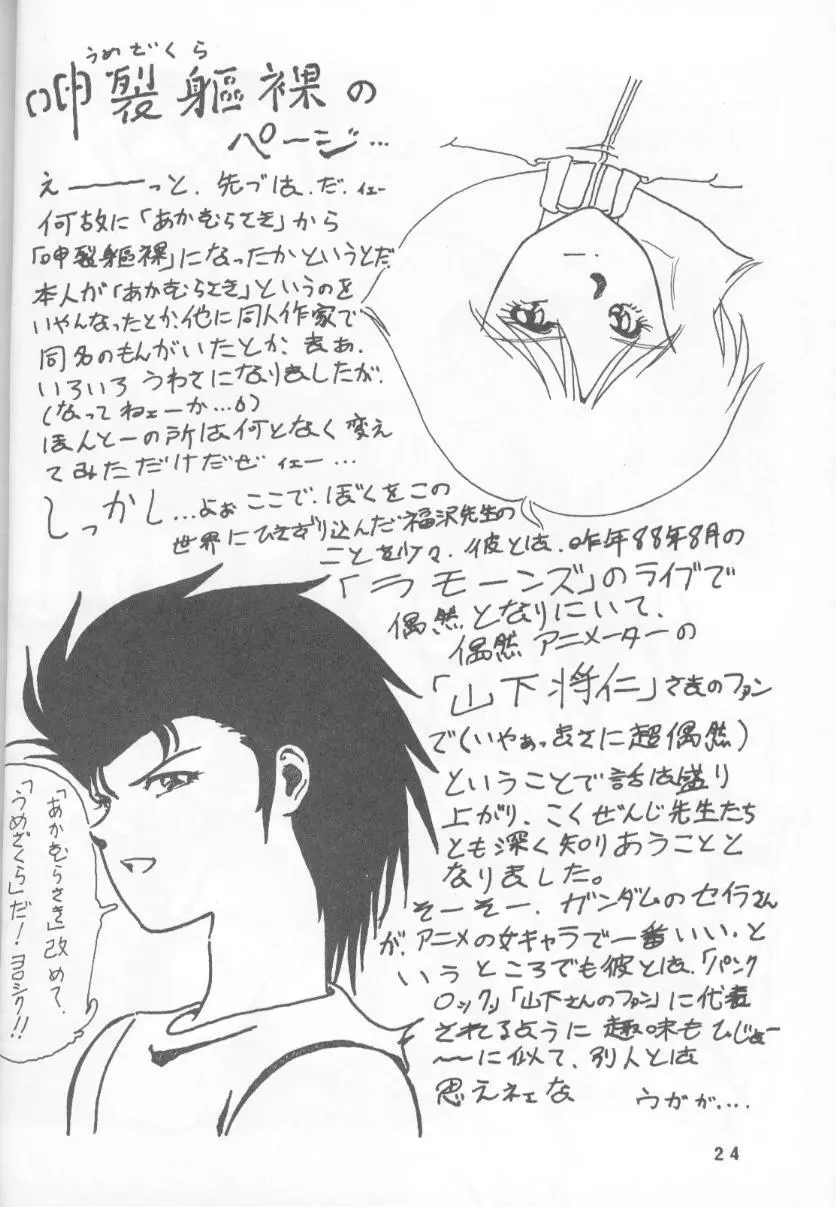 うめざくら
呻裂軀裸の
ページ…
えーーーっと、先づは、だ、イェー
何故に「あかむらさき」から
「呻裂軀裸」になったかというとだ、
本人が「あかむらさき」というのを
いやんなったとか、他に同人作家で
同名のもんがいたとか、まぁ、
いろいろ うわさになりましたが、
(なってねェーか…)
ほんとーの所は何となく変え
てみただけだぜ イェー…
しっかし…よぉ ここで、ぼくをこの
世界にひきずり込んだ福沢先生の
ことを少々、彼とは、昨年88年8月の
「ラモーンズ」のライブで
偶然となりにいて、
偶然 アニメーターの
「山下将仁」さまのファン
で(いやぁっまさに超偶然)
ということで話は盛り
上がり、こくぜんじ先生たち
とも深く知りあうことと
なりました。
そーそー、ガンダムのセイラさん
が、アニメの女キャラで一番いい、と
いう ところでも彼とは、「パンク
ロック」「山下さんのファン」に代表
されるように 趣味もひじょー
〜〜に似て、別人とは
思えネェな ウガガ....
「あかむらさき」改めて、
「うめざくら」だ！ヨロシク!!
24